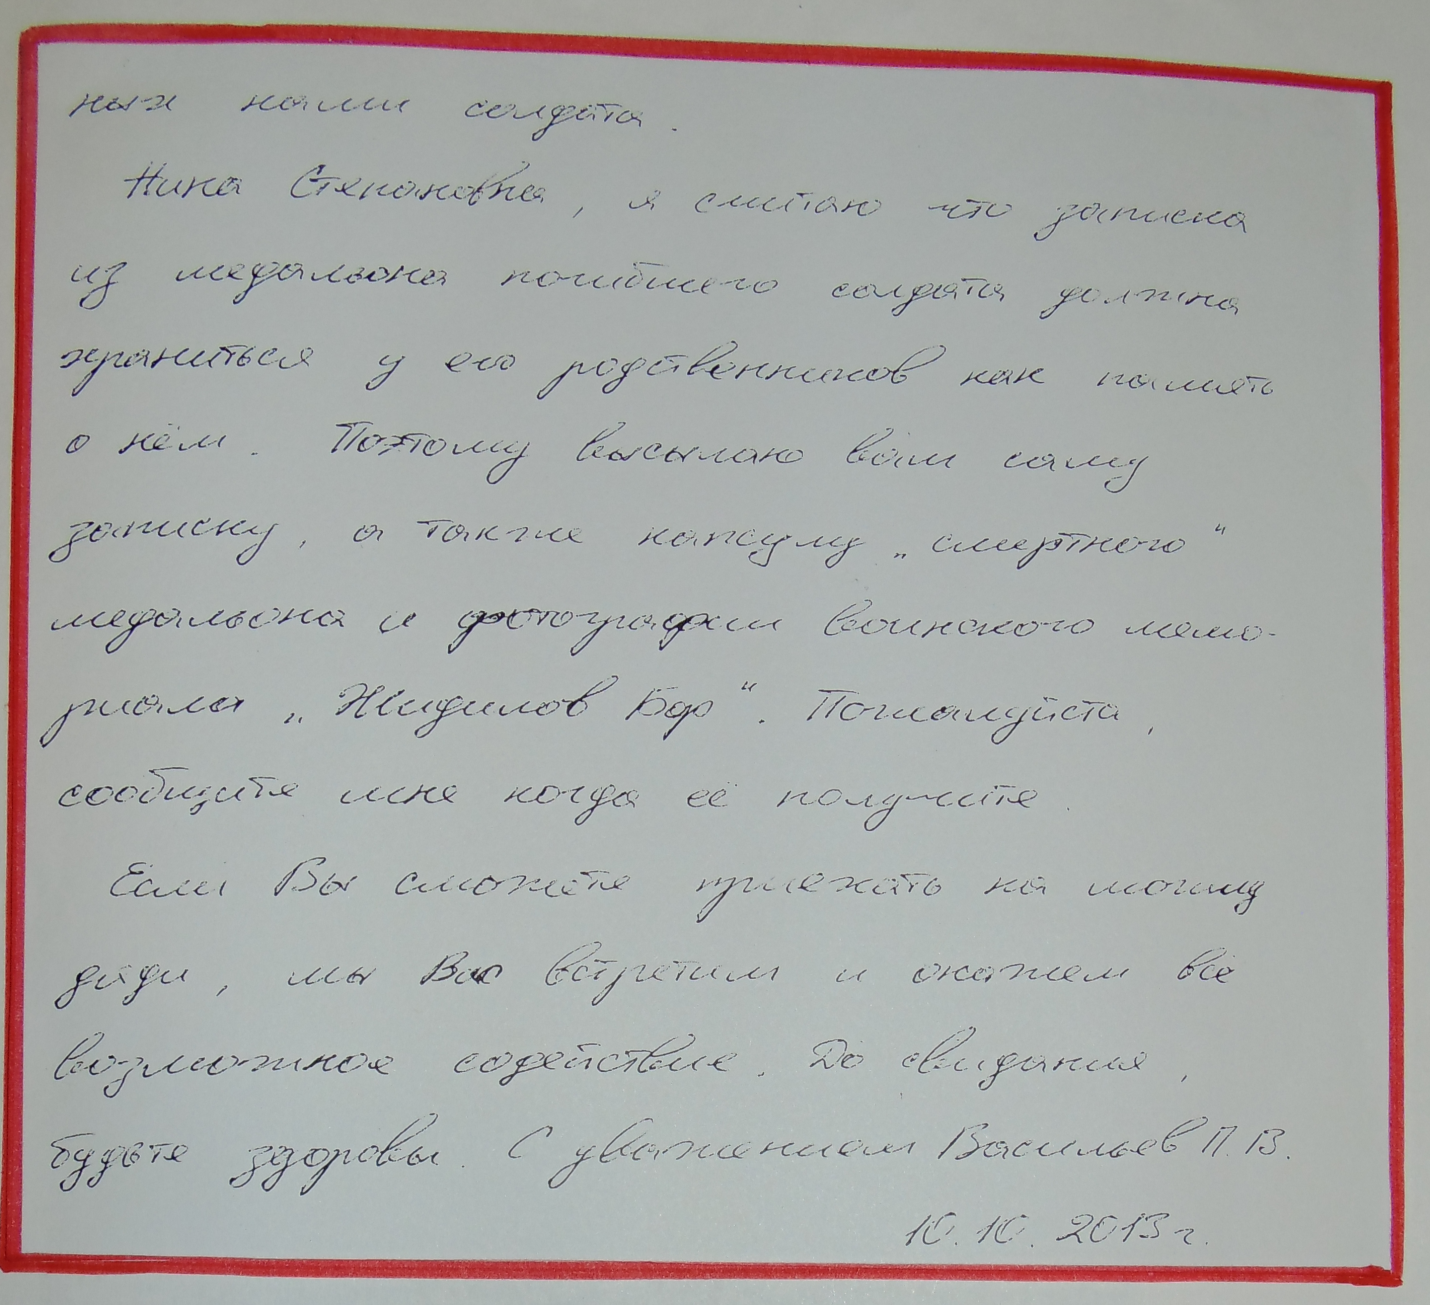 ных нами солдата.
Нина Степановна, я считаю что записка
из медальона погибшего солдата должна
храниться у его родственников как память
о нём. Поэтому высылаю вам саму
записку, а также капсулу „смертного“
медальона и фотографии воинского мемо-
риала „Жидилов Бор“. Пожалуйста,
сообщите мне когда её получите.
Если Вы сможете приехать на могилу
дяди, мы Вас встретим и окажем всё
возможное содействие. До свидания,
будьте здоровы. С уважением Васильев П.В.
10.10.2013г.